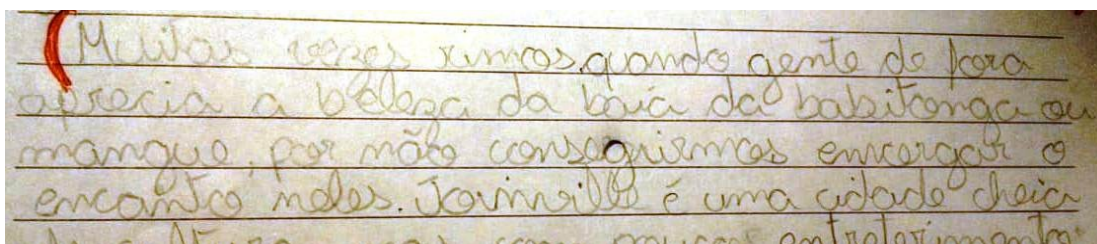 Muitas vezes rimos quando gente de fora
aprecia a beleza da baía da babitonga ou
mangue, por não conseguirmos enxergar o
encanto neles. Joinville é uma cidade cheia
cultura com poucos entreterimento